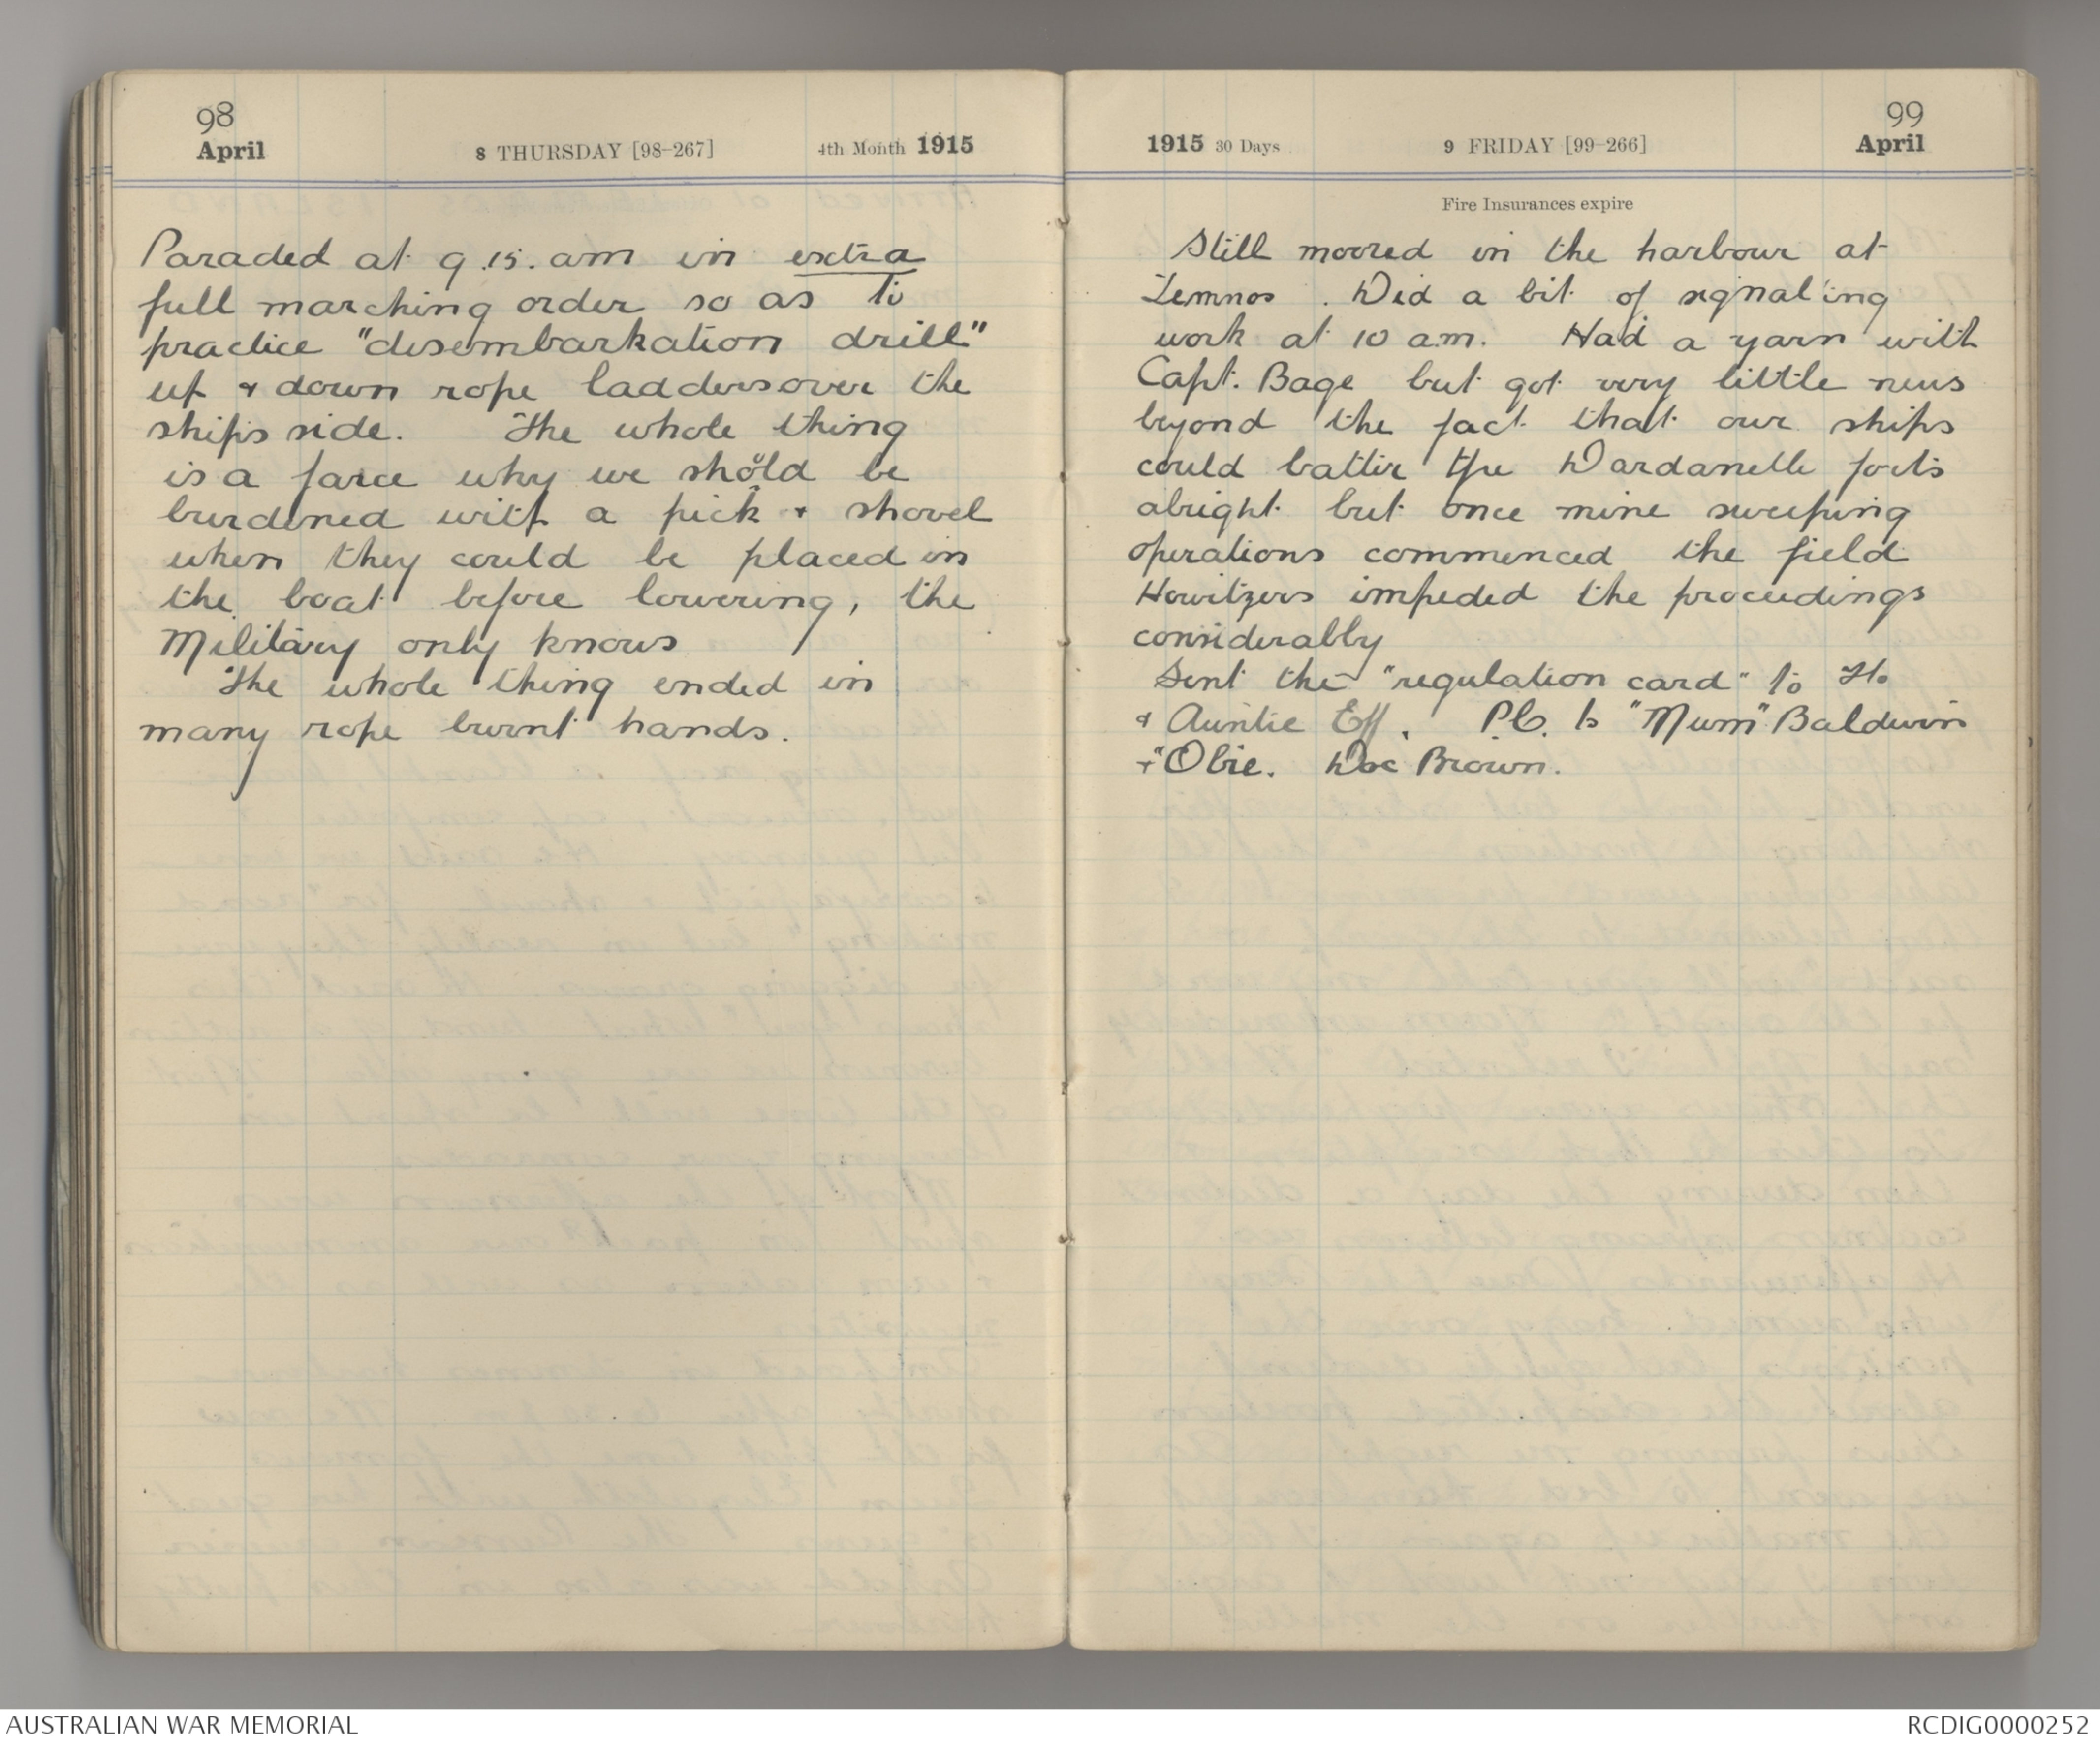 98
April
8 THURSDAY [98-267]
4th Month 1915
Paraded at 9.15. am in extra
full marching order so as to
practice "disembarkation drill"
up & down rope ladders over the
ships side. The whole thing
is a farce why we should be
burdened with a pick & shovel
when they could be placed in
the boat before lowering, the
Military only knows
The whole thing ended in
many rope burnt hands.
99
1915 30 Days
9 FRIDAY [99-266]
April
Fire Insurances expire
Still moored in the harbour at
Lemnos. Did a bit of signal'ing
work at 10 a.m. Had a yarn with
Capt. Bage but got very little news
beyond the fact that our ships
could batter the Dardanelle forts
alright but once mine sweeping
operations commenced the field
Howitzers impeded the proceedings
considerably
Sent the "regulation card" to
& Auntie Eff. P.C. to "Mum" Baldwin
& "Obie. Doc Brown.
AUSTRALIAN WAR MEMORIAL
RCDIG0000252